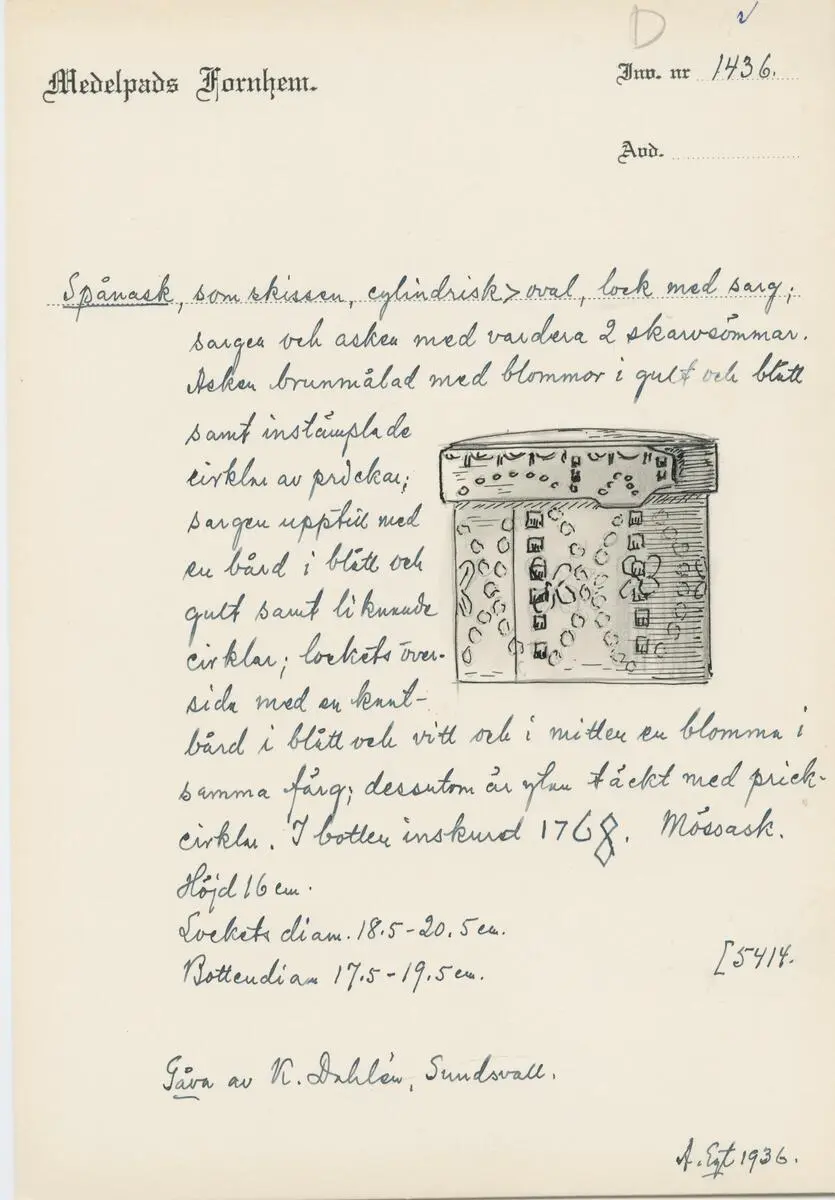 D
Medelpads Fornhem.
Inv. nr 1436.
Avd.
Spånask, som skissen, cylindrisk > oval, lock med sarg;
sargen och asken med vardera 2 skarvsömmar.
Asken brunmålad med blommor i gult och blått
samt instämplade
cirklar av prickar;
sargen upptill med
en bård i blått och
gult samt liknande
cirklar; lockets över-
sida med en kant-
bård i blått och vitt och i mitten en blomma i
samma färg; dessutom är ytan täckt med prick-
cirklar. I botten inskured 1768. Mössask.
Höjd 16 cm.
Lockets diam. 18.5-20.5 cm.
Bottendiam 17.5-19.5 cm.
[5414.
Gåva av K. Dahlén, Sundsvall.
A. Egt 1936.